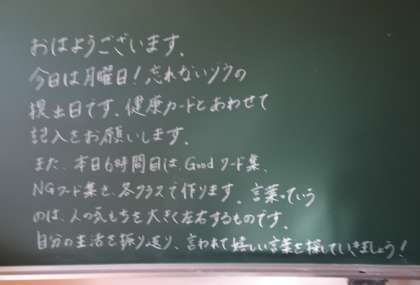 おはようございます。
今日は月曜日！忘れないゾウの
提出日です。健康カードとあわせて
記入をお願いします。
また、本日6時間目は、Goodワード集、
NGワード集を、各クラスで作ります。言葉っていう
のは、人の気もちを大きく左右するものです。
自分の生活を振り返り、言われて嬉しい言葉を探していきましょう！